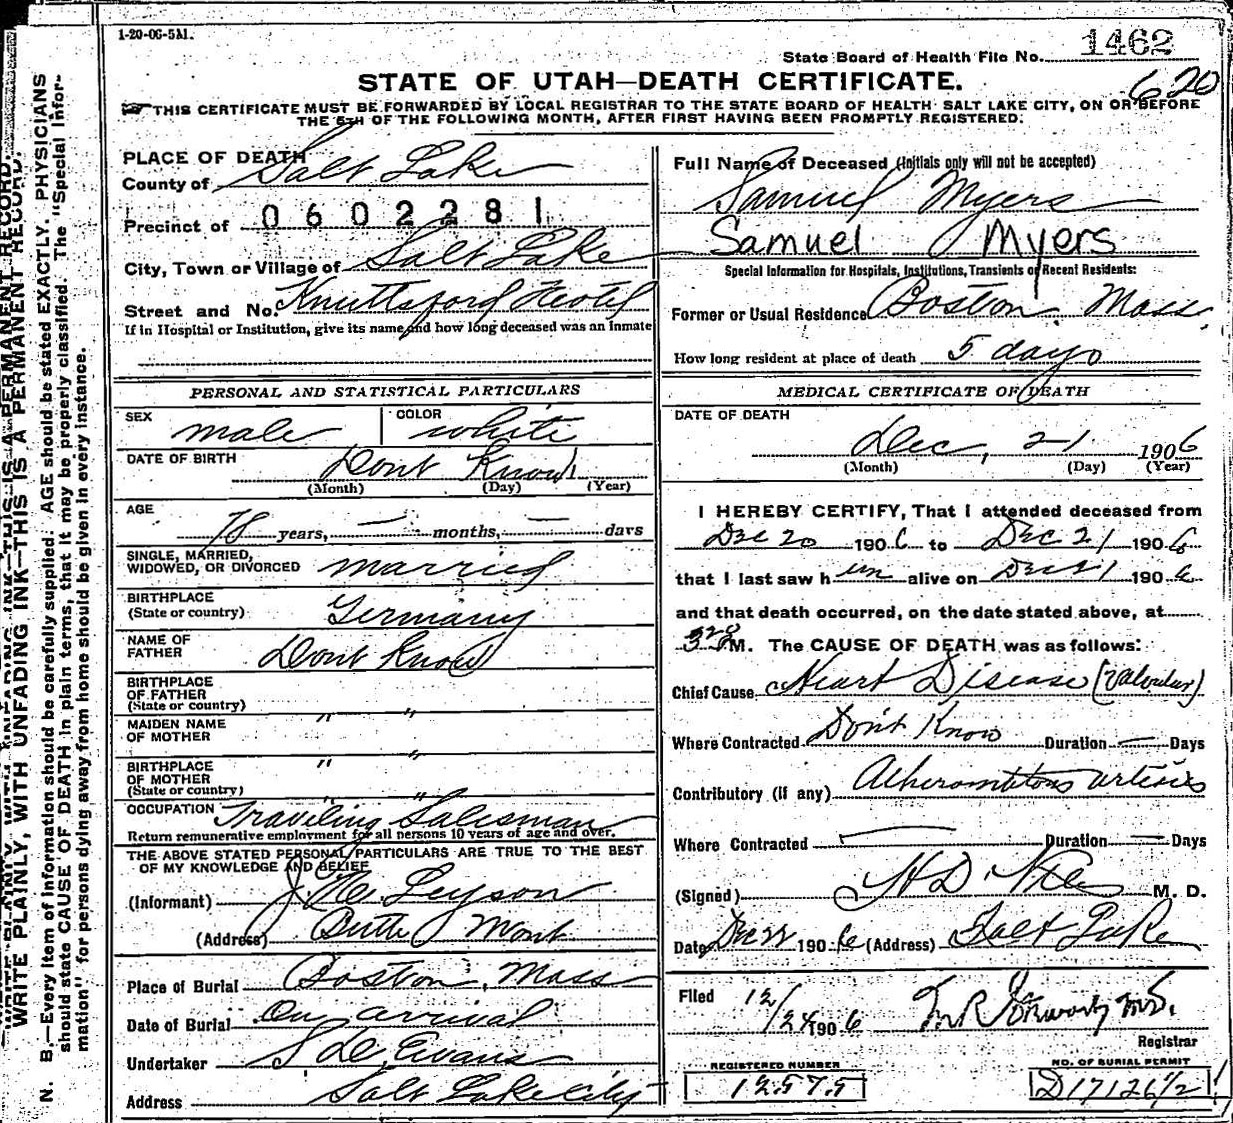 1-20-06-5M.
State Board of Health File No. 1462
620
STATE OF UTAH—DEATH CERTIFICATE.
THIS CERTIFICATE MUST BE FORWARDED BY LOCAL REGISTRAR TO THE STATE BOARD OF HEALTH SALT LAKE CITY, ON OR BEFORE
THE 5TH OF THE FOLLOWING MONTH, AFTER FIRST HAVING BEEN PROMPTLY REGISTERED.
WRITE PLAINLY, WITH UNFADING INK—THIS IS A PERMANENT RECORD.
N. B.—Every item of information should be carefully supplied. AGE should be stated EXACTLY. PHYSICIANS
should state CAUSE OF DEATH in plain terms, that it may be properly classified. The "Special Infor-
mation" for persons dying away from home should be given in every instance.
PLACE OF DEATH
County of Salt Lake
Precinct of 0602281
City, Town or Village of Salt Lake
Street and No. Knuttsford Hotel
If in Hospital or Institution, give its name and how long deceased was an inmate
PERSONAL AND STATISTICAL PARTICULARS
SEX male COLOR white
DATE OF BIRTH Dont Know
(Month) (Day) (Year)
AGE 78 years, — months, — days
SINGLE, MARRIED,
WIDOWED, OR DIVORCED married
BIRTHPLACE
(State or country) Germany
NAME OF
FATHER Dont Know
BIRTHPLACE
OF FATHER
(State or country) " "
MAIDEN NAME
OF MOTHER " "
BIRTHPLACE
OF MOTHER
(State or country) " "
OCCUPATION Traveling Salesman
Return remunerative employment for all persons 10 years of age and over.
THE ABOVE STATED PERSONAL PARTICULARS ARE TRUE TO THE BEST
OF MY KNOWLEDGE AND BELIEF
(Informant) Leyson
(Address) Butte Mont
Place of Burial Boston, Mass
Date of Burial On arrival
Undertaker Evans
Address Salt Lake City
Full Name of Deceased (Initials only will not be accepted)
Samuel Myers
Samuel Myers
Special Information for Hospitals, Institutions, Transients or Recent Residents:
Former or Usual Residence Boston Mass.
How long resident at place of death 5 days
MEDICAL CERTIFICATE OF DEATH
DATE OF DEATH
Dec, 21 1906
(Month) (Day) (Year)
I HEREBY CERTIFY, That I attended deceased from
Dec 20 1906 to Dec 21 1906
that I last saw him alive on Dec 21 1906
and that death occurred, on the date stated above, at
M. The CAUSE OF DEATH was as follows:
Chief Cause Heart Disease (Valvular)
Where Contracted Don't Know Duration — Days
Contributory (if any) Atheromatous arteries
Where Contracted Duration — Days
(Signed) M. D.
Date Dec 22 1906 (Address) Salt Lake
Filed 12/24 1906
Registrar
REGISTERED NUMBER
12575
NO. OF BURIAL PERMIT
D17126 1/2